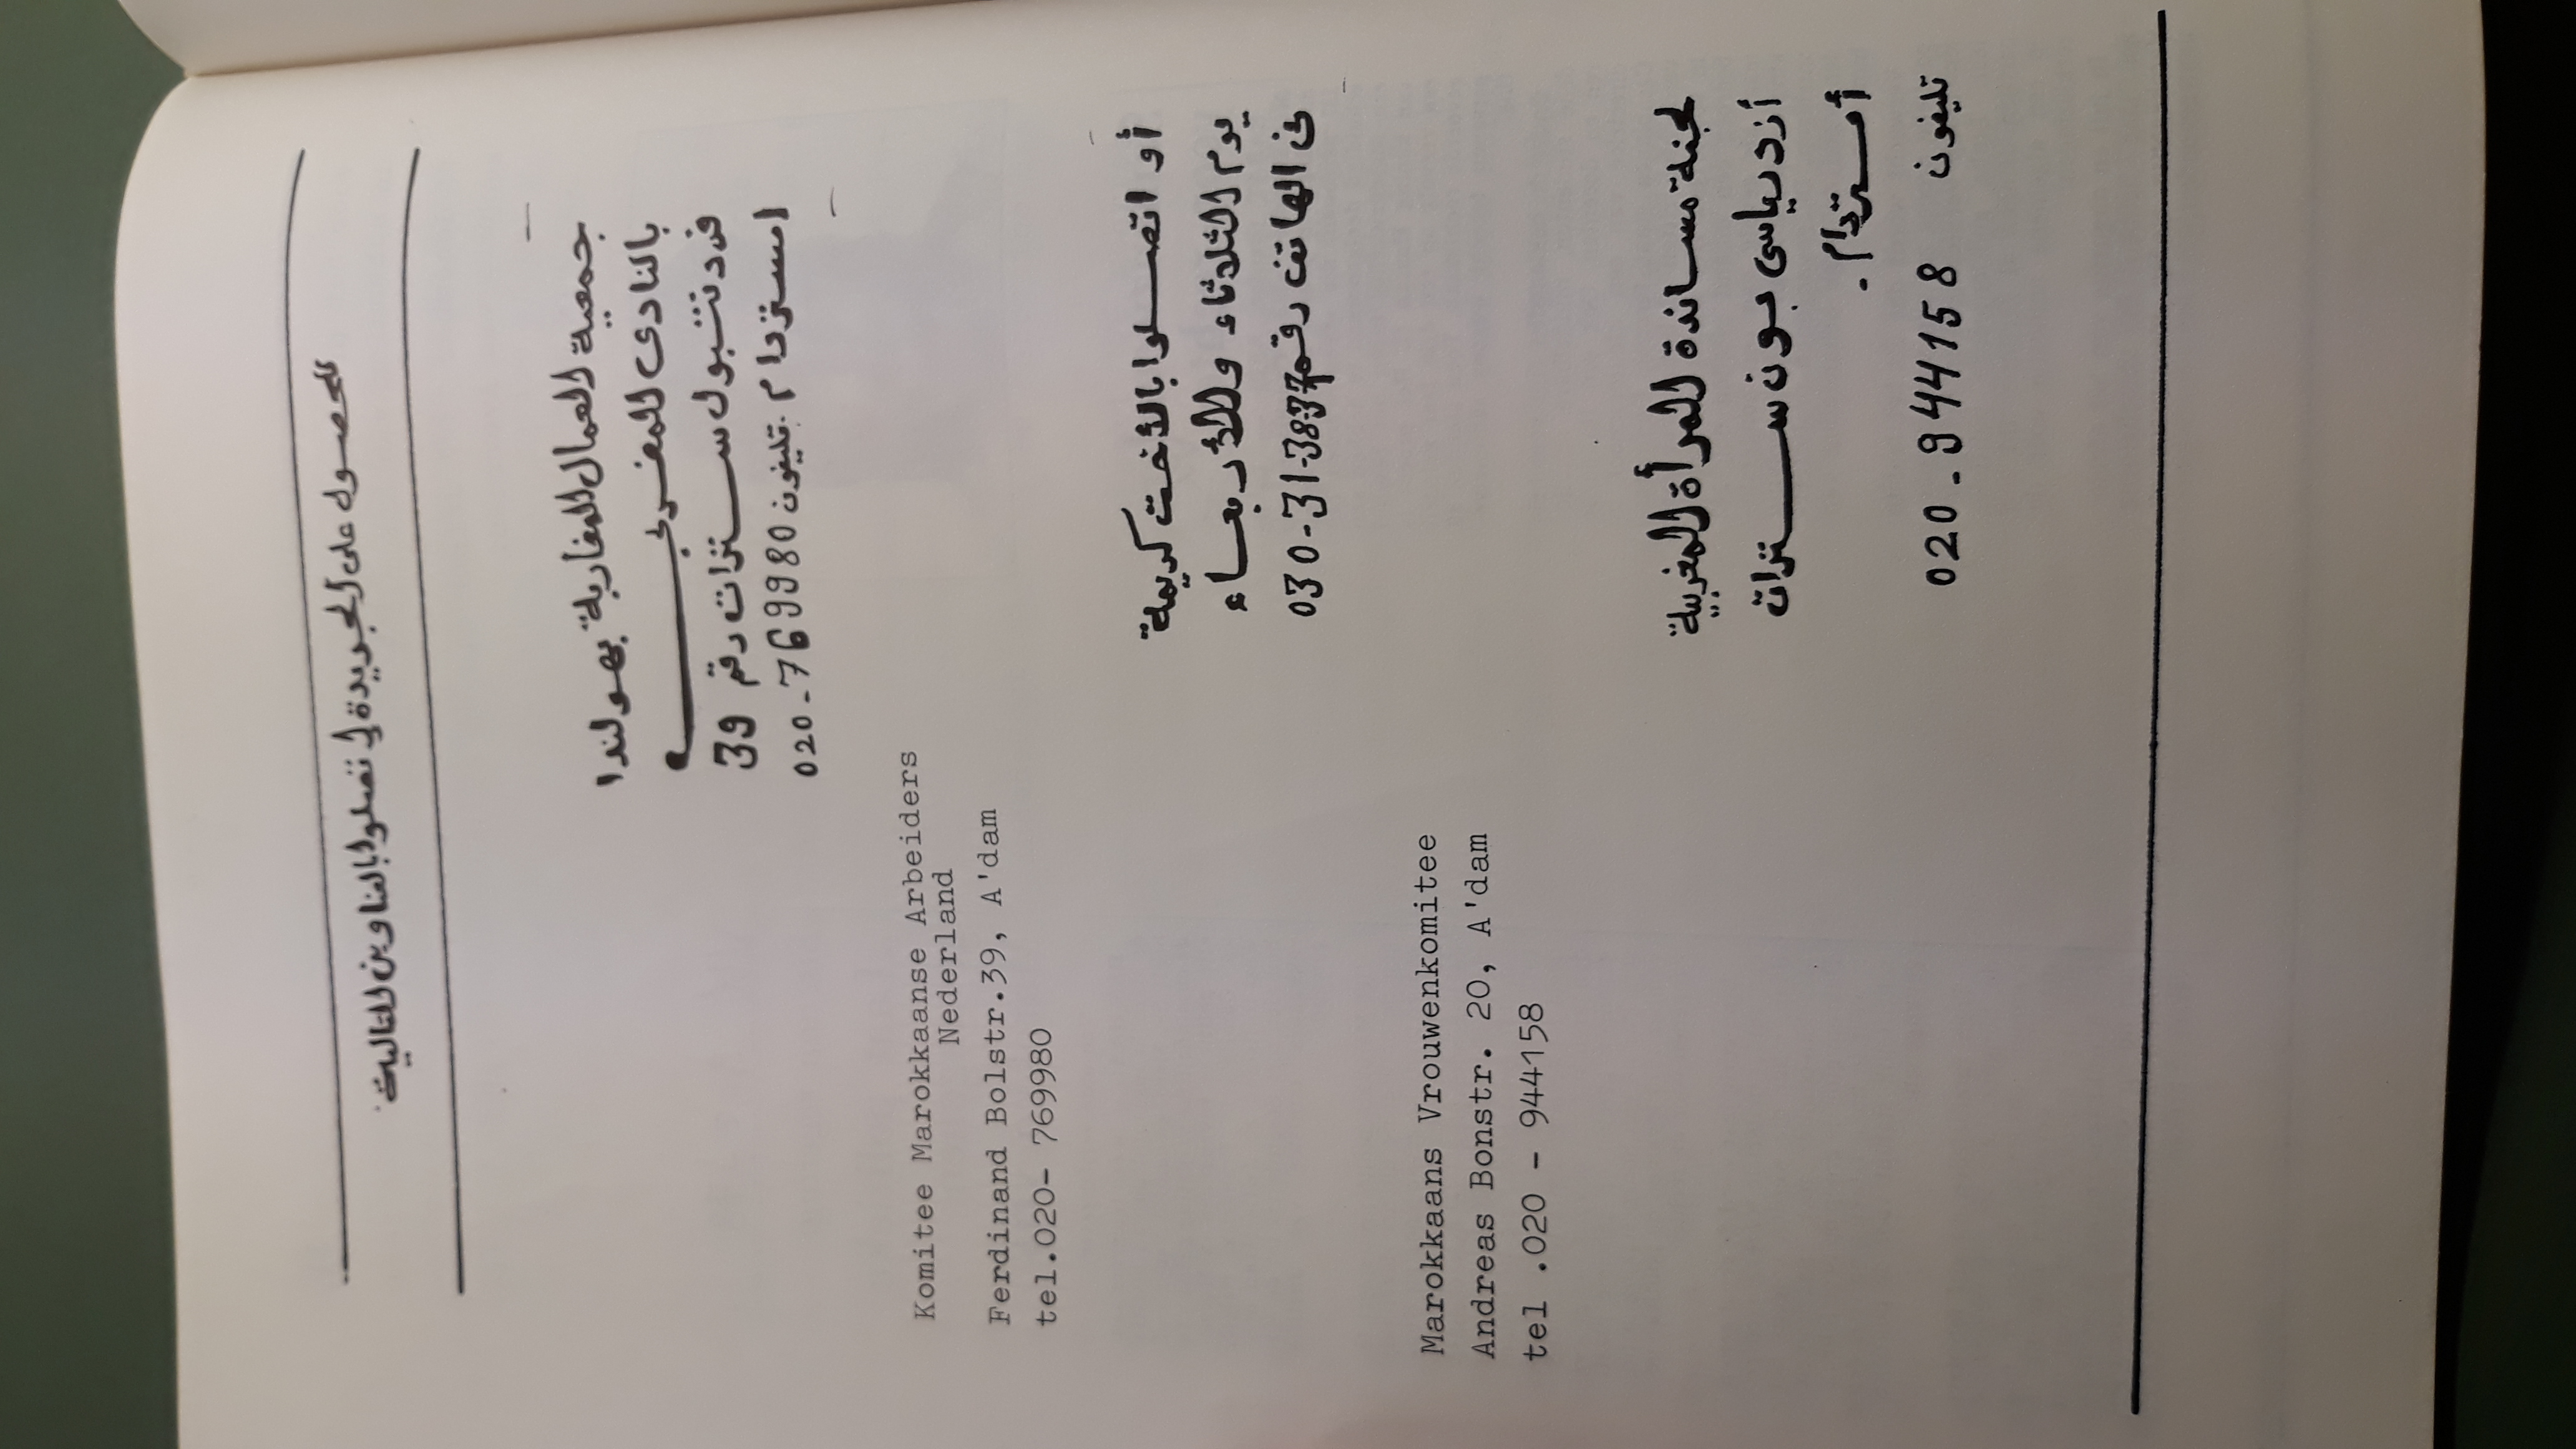 للحصول على الجريدة إتصلوا بالعناوين التالية
جمعية العمال المغاربة بهولندا
بالنادى المغربي
فردننبول سترات رقم 39
امستردام . تليفون 769980 - 020
Komitee Marokkaanse Arbeiders
Nederland
Ferdinand Bolstr.39, A'dam
tel.020- 769980
أو اتصلوا بالأخت كريمة
يوم الثلاثاء والأربعاء
فى الهاتف رقم
Marokkaans Vrouwenkomitee
Andreas Bonstr. 20, A'dam
tel .020 - 944158
لجنة مساندة المرأة المغربية
أندرياسى بون سترات
أمستردام .
تليفون 944158 - 020